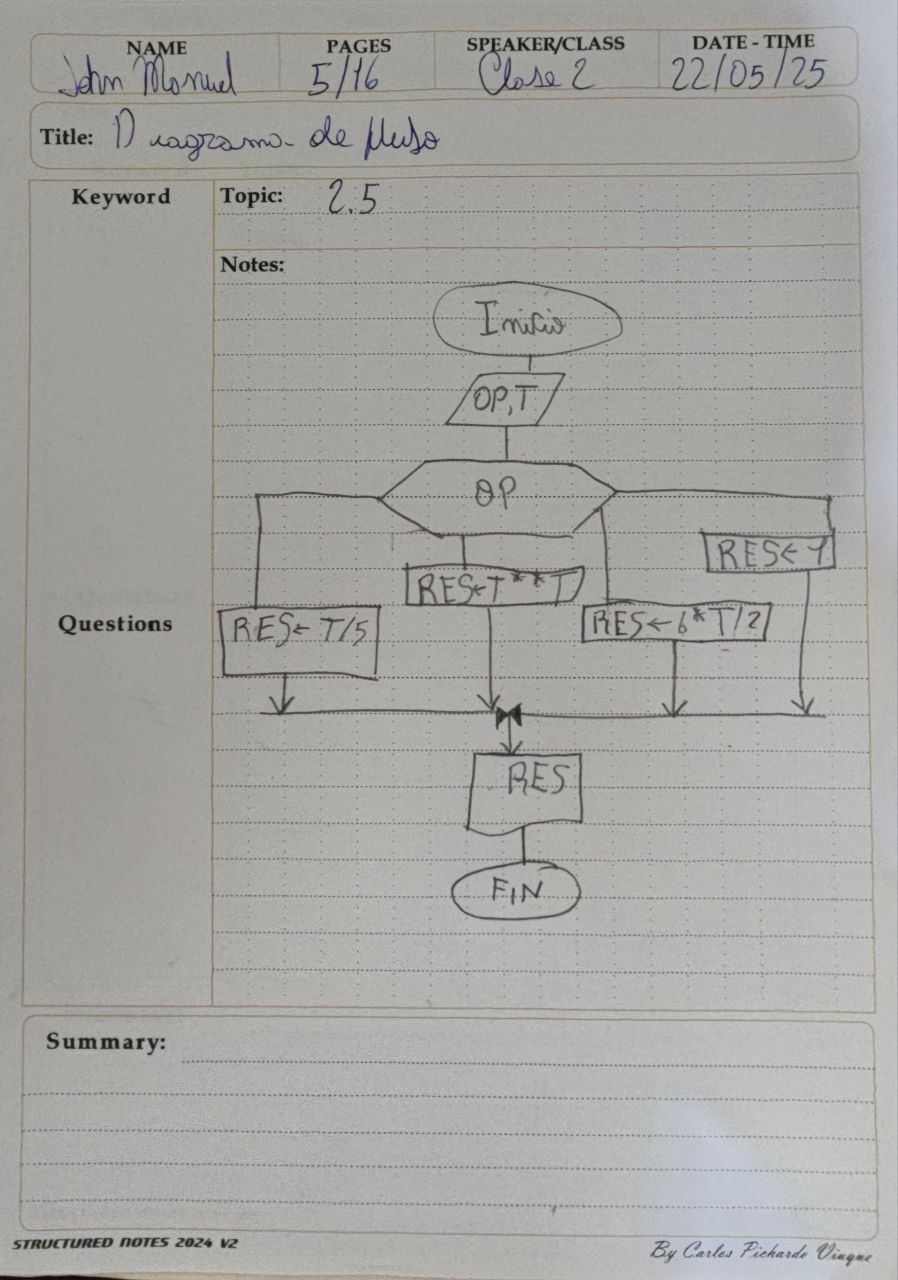 NAME PAGES SPEAKER/CLASS DATE - TIME
John Manuel 5/16 Clase 2 22/05/25
Title: Diagrama de flujo
Keyword
Topic: 2.5
Notes:
Inicio
OP,T
OP
RES←1
RES←T**T
Questions
RES← T/5
RES←6*T/2
RES
FIN
Summary:
STRUCTURED NOTES 2024 V2
By Carlos Pichardo Viuque